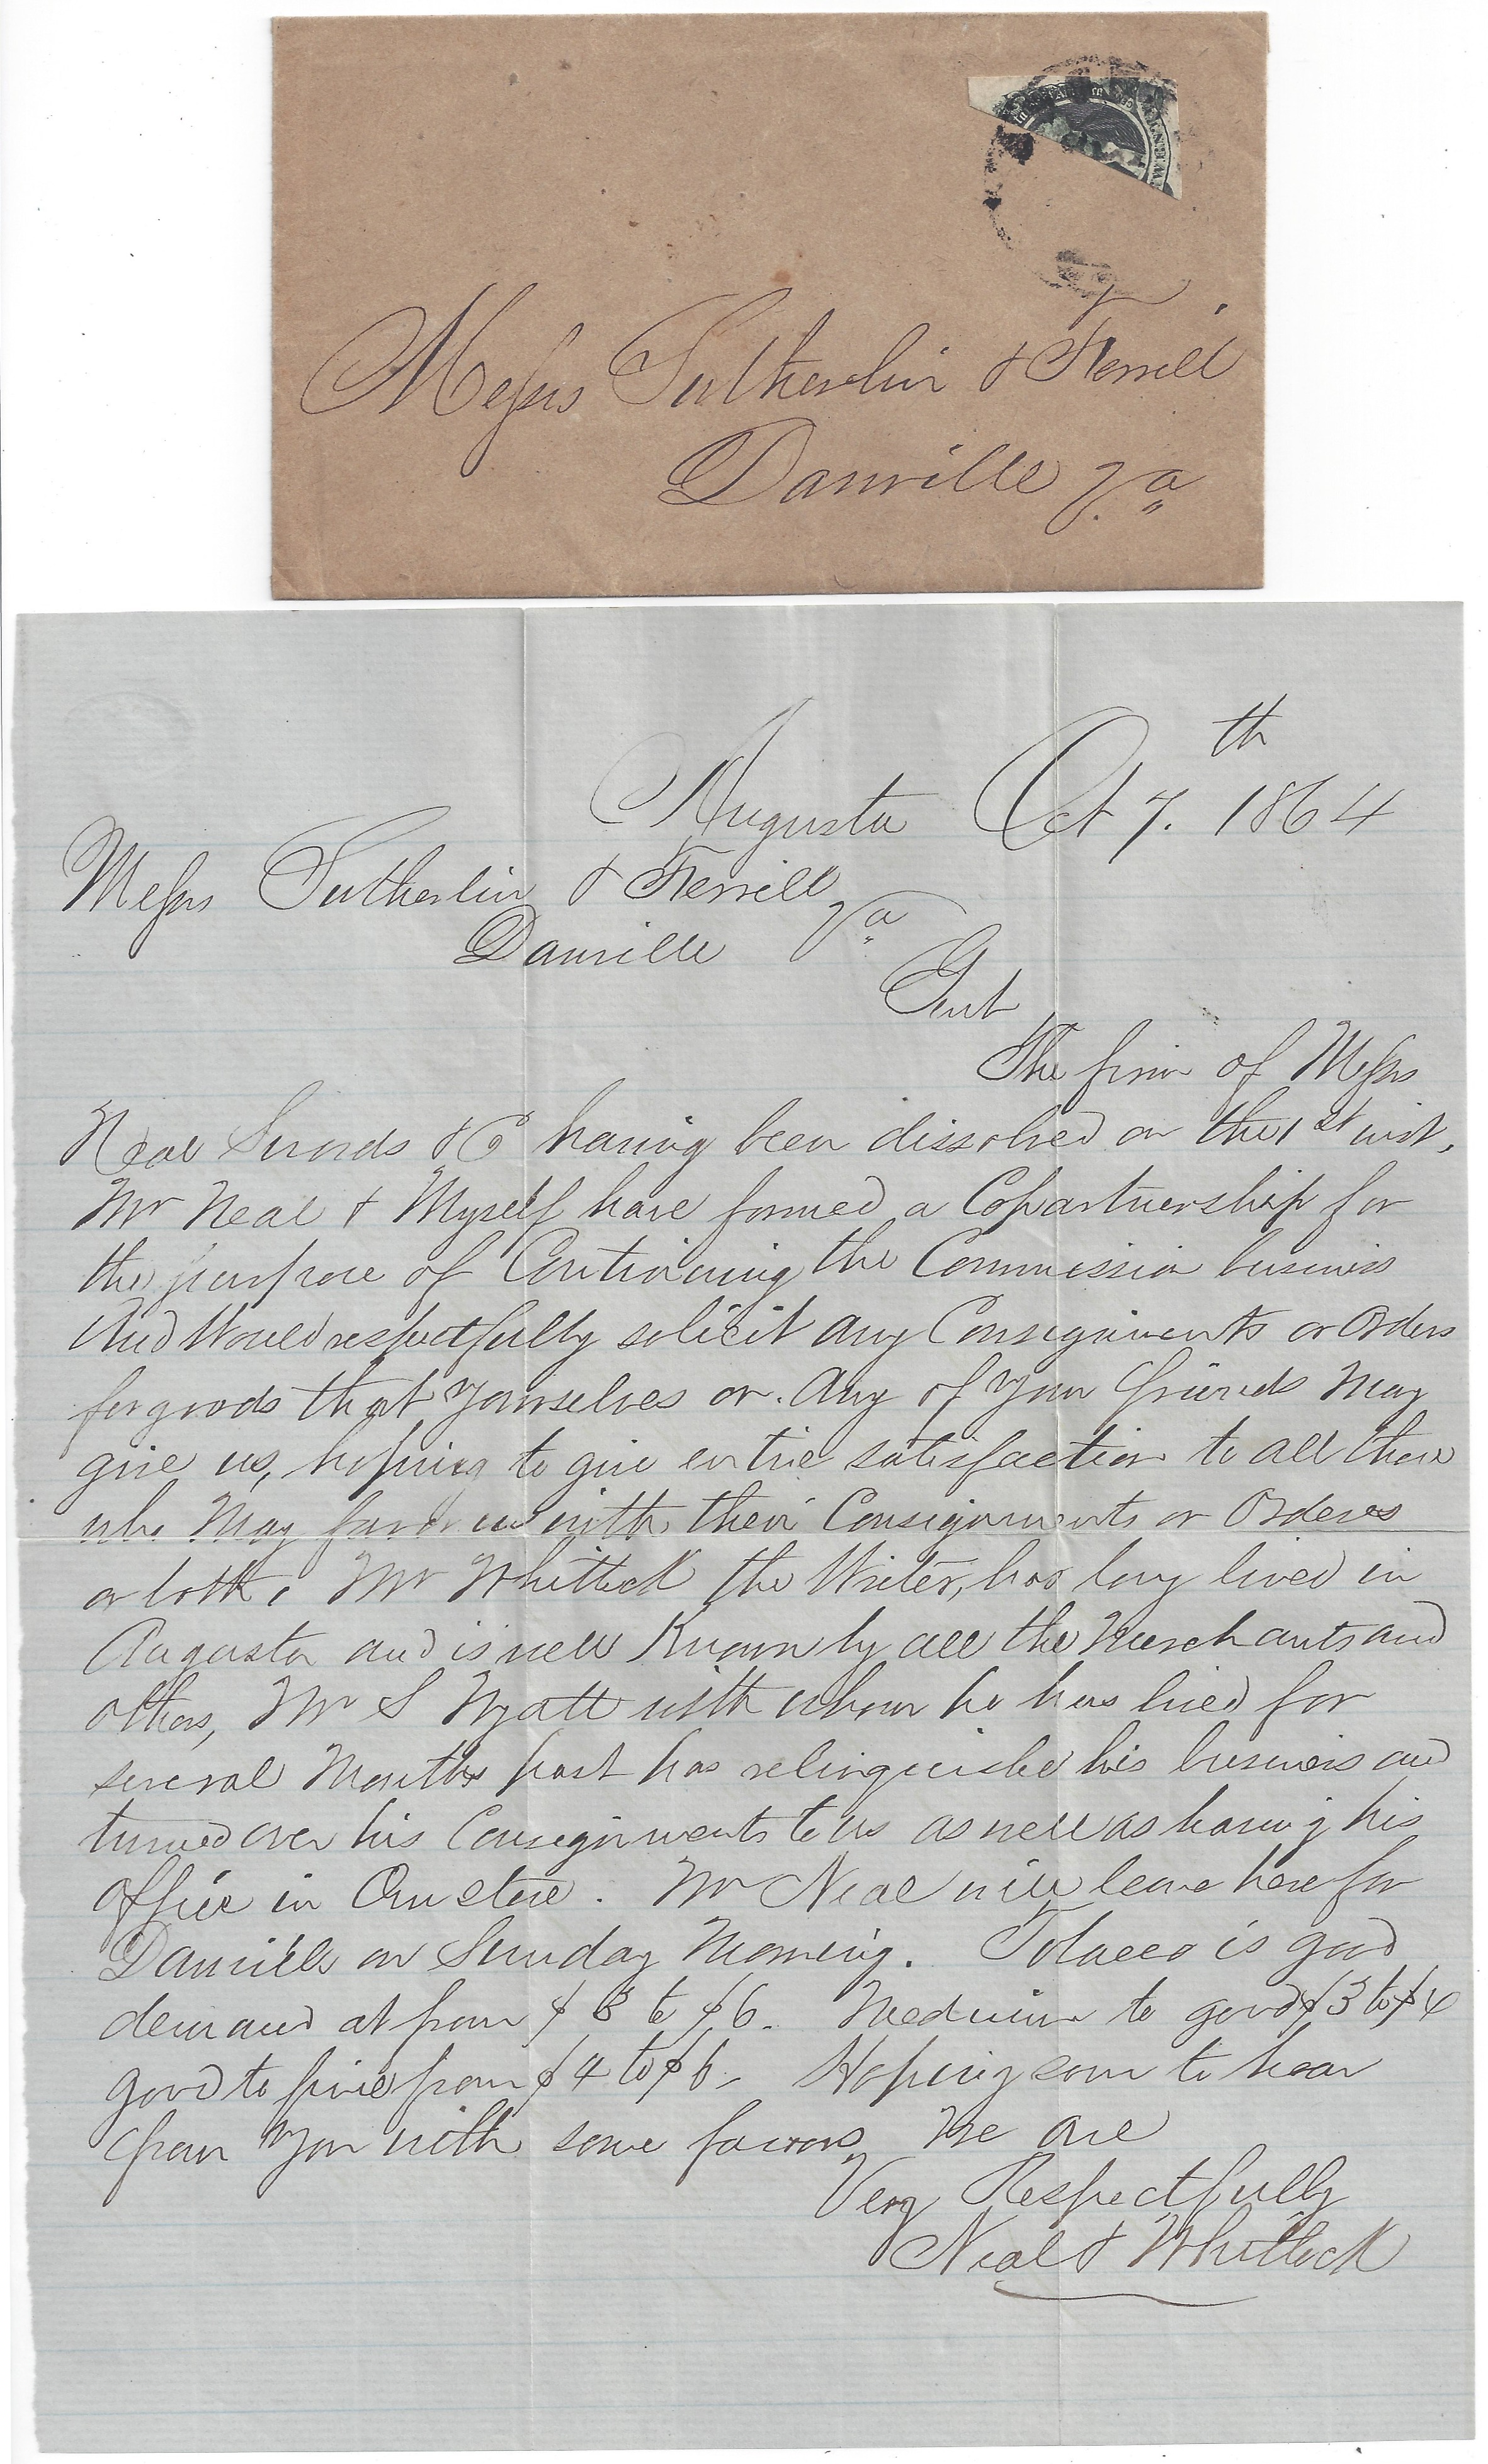 Messrs Sutherlin & Ferrell
Danville Va
Augusta Oct 7th. 1864
Messrs Sutherlin & Ferrell
Danville Va
Gent
The firm of Messrs
Neal & Co having been dissolved on the 1st inst,
Mr Neal & Myself have formed a Copartnership for
the purpose of Continuing the Commission business
And Would respectfully solicit any Consignments or Orders
for goods that yourselves or any of your friends May
give us, hoping to give entire satisfaction to all those
who May favor us with their Consignments or Orders
or both. Mr Whitlock the Writer, has long lived in
Augusta and is well Known by all the Merchants and
others, Mr S Wyatt with whom he has lived for
several Months past has relinquished his business and
turned over his Consignments to us as well as having his
office in Our store. Mr Neal will leave here for
Danville on Sunday Morning. Tobacco is good
demand at from $ to $6. Medium to good $3 to $4
good to fine from $4 to $6. Hoping soon to hear
from You with some favors We are
Very Respectfully
Neal & Whitlock